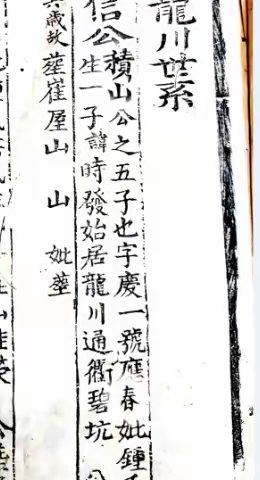 龍川世系
信公積山公之五子也字慶一號應春妣鍾
生一子諱時發始居龍川通衢碧坑
歲故塟崔屋山 山 妣塟